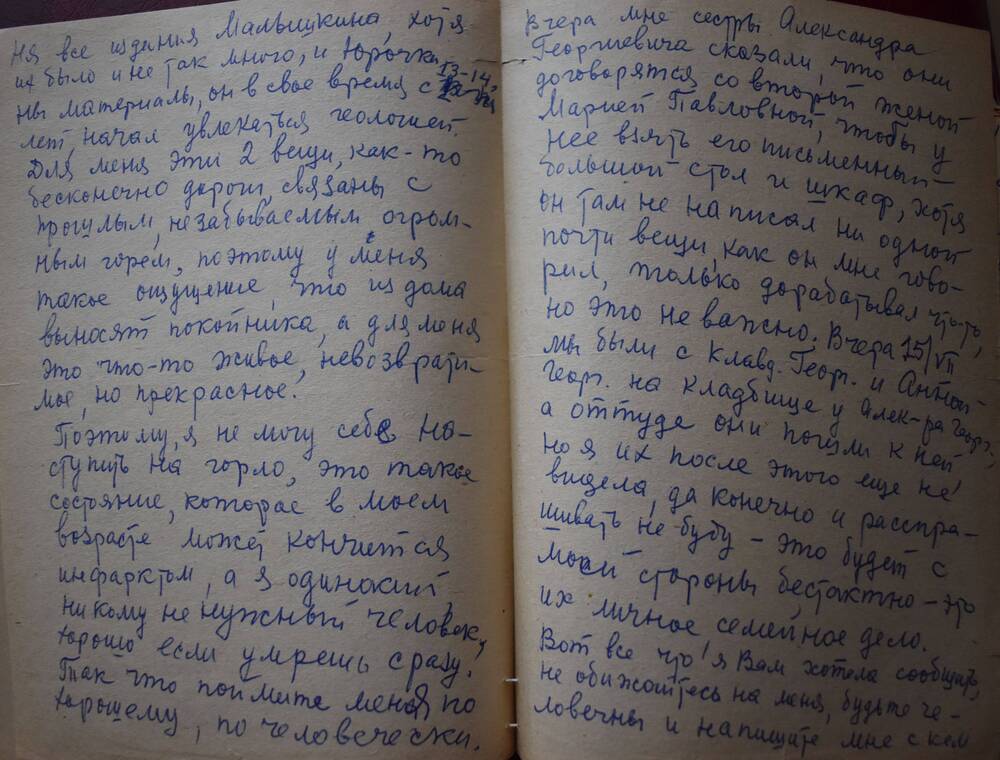 ня все издания Малышкина, хотя
их было и не так много, и Юрочки-
ны материалы, он в свое время с 13-14
лет, начал увлекаться геологией.
Для меня эти 2 вещи, как-то
бесконечно дороги, связаны с
прошлым, незабываемым огром-
ным горем, поэтому у меня
такое ощущение, что из дома
выносят покойника, а для меня
это что-то живое, невозврати-
мое, но прекрасное.
Поэтому, я не могу себе на-
ступить на горло, это такое
состояние, которое в моем
возрасте может кончится
инфарктом, а я одинокий
никому не нужный человек,
хорошо если умрешь сразу!
Так что поймите меня по
хорошему, по человечески.
Вчера мне сестры Александра
Георгиевича сказали, что они
договорятся со второй женой
Марией Павловной, чтобы у
нее взять его письменный
большой стол и шкаф, хотя
он там не написал ни одной
почти вещи, как он мне гово-
рил, только дорабатывал что-то,
но это не важно. Вчера 15/VII
мы были с Клавд. Георг. и Анной
Георг. на кладбище у Алек-ра Георг.,
а оттуда они пошли к ней
но я их после этого еще не
видела, да конечно и расспра-
шивать не буду – это будет с
моей стороны бестактно – это
их личное семейное дело.
Вот все что я Вам хотела сообщить,
не обижайтесь на меня, будьте че-
ловечны и напишите мне с кем